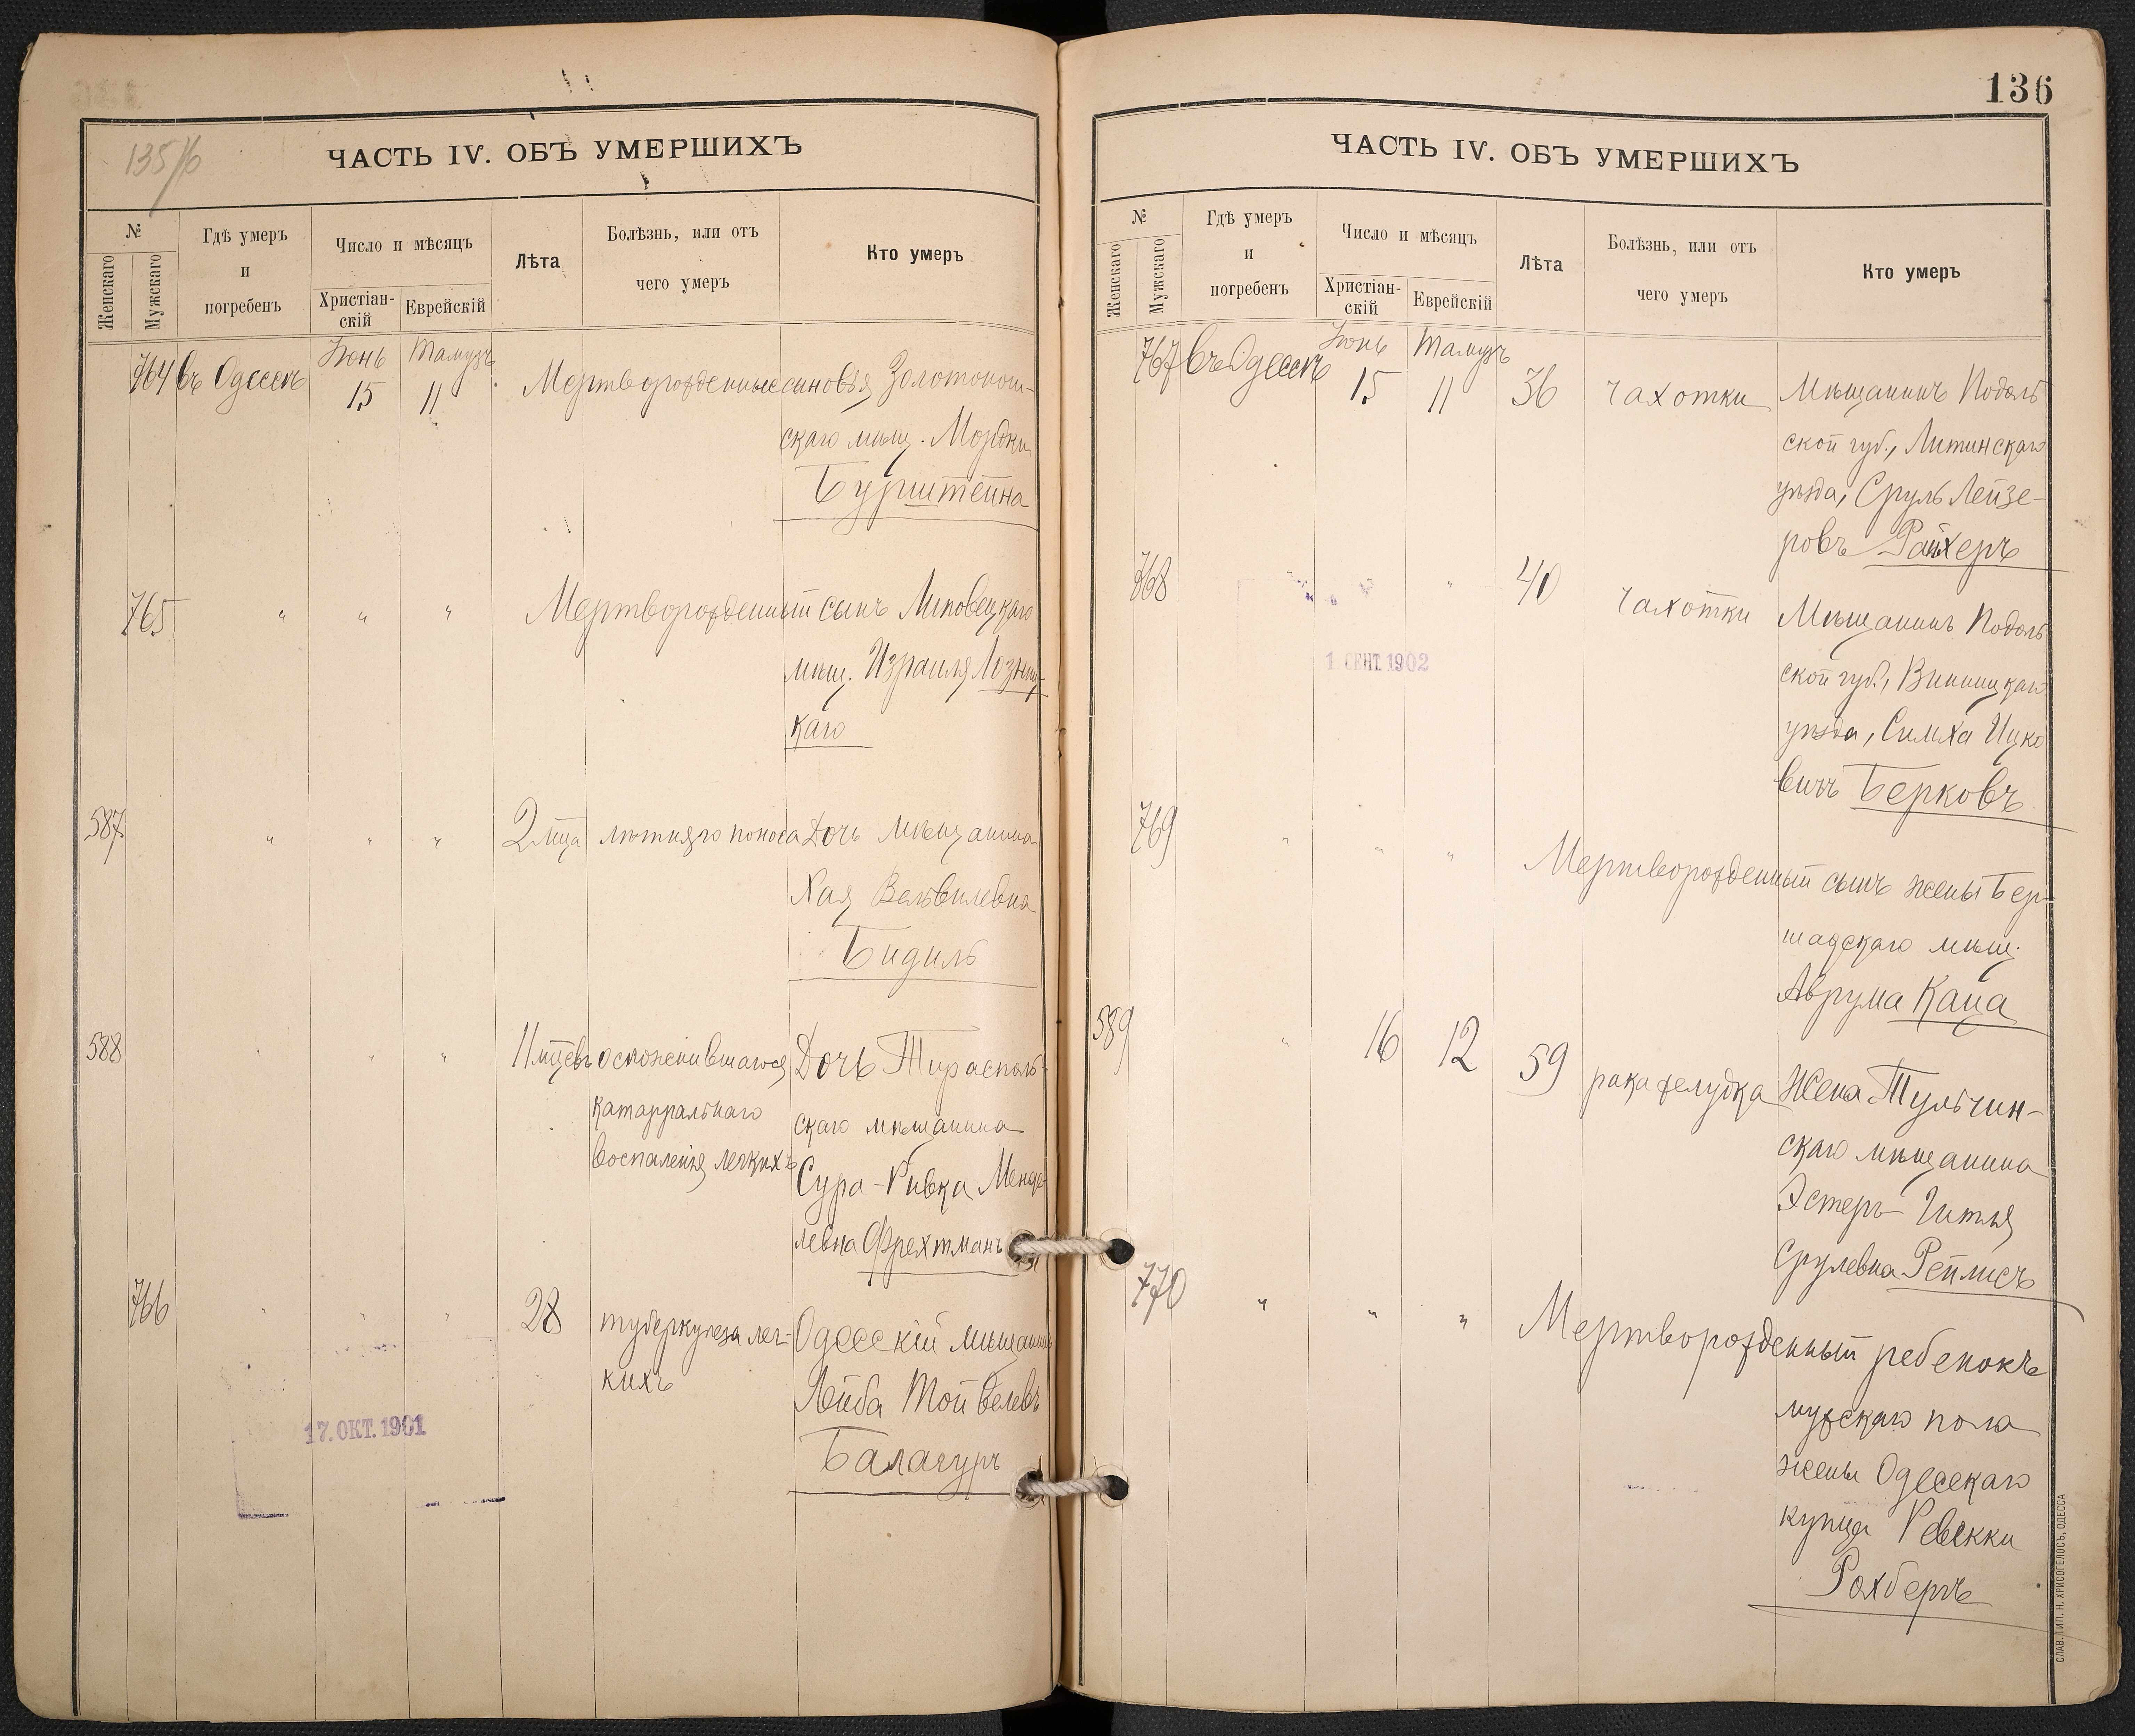 135/б
ЧАСТЬ IV. ОБЪ УМЕРШИХЪ
№
Женскаго
Мужскаго
Гдѣ умеръ
и
погребенъ
Число и мѣсяцъ
Христіан-
скій
Еврейскій
Лѣта
Болѣзнь, или отъ
чего умеръ
Кто умеръ
764 въ Одессѣ Іюнь 15 Тамузъ 11 Мертворожденные сыновья Золотонош-
скаго мѣщ. Мордки
Бурштейна
765 " " " Мертворожденный сынъ Липовецкаго
мѣщ. Израиля Лозниц-
каго
587 " " " 2 мца лѣтняго поноса Дочь мѣщанина
Хая Вольвилевна
Бидиль
588 " " " 11 мцевъ осложнившагося Дочь Тирасполь-
катарральнаго скаго мѣщанина
воспаленія легкихъ Сура-Ривка Менде-
левна Фрехтманъ
766 " " " 28 туберкулеза лег- Одесскій мѣщанинъ
кихъ Лейба Мойвелевъ
Балагуръ
17. ОКТ. 1901
136
ЧАСТЬ IV. ОБЪ УМЕРШИХЪ
№
Женскаго
Мужскаго
Гдѣ умеръ
и
погребенъ
Число и мѣсяцъ
Христіан-
скій
Еврейскій
Лѣта
Болѣзнь, или отъ
чего умеръ
Кто умеръ
767 въ Одессѣ Іюнь 15 Тамузъ 11 36 чахотки Мѣщанинъ Подоль
ской губ., Литинскаго
уѣзда, Сруль Лейзе-
ровъ Райхеръ
768 " 40 чахотки Мѣщанинъ Подоль
ской губ., Винницкаго
уѣзда, Симха Ицко
вичъ Берковъ
1 СЕНТ. 1902
769 " " " Мертворожденный сынъ жены Бер-
шадскаго мѣщ.
Аврума Каца
589 " 16 12 59 рака желудка Жена Тульчин-
скаго мѣщанина
Эстеръ-Гитля
Срулевна Рейлисъ
770 " " " Мертворожденный ребенокъ
мужскаго пола
жены Одесскаго
купца Ревекки
Рохберъ
СЛАВ. ТИП. Н. ХРИСОГЕЛОСЪ, ОДЕССА